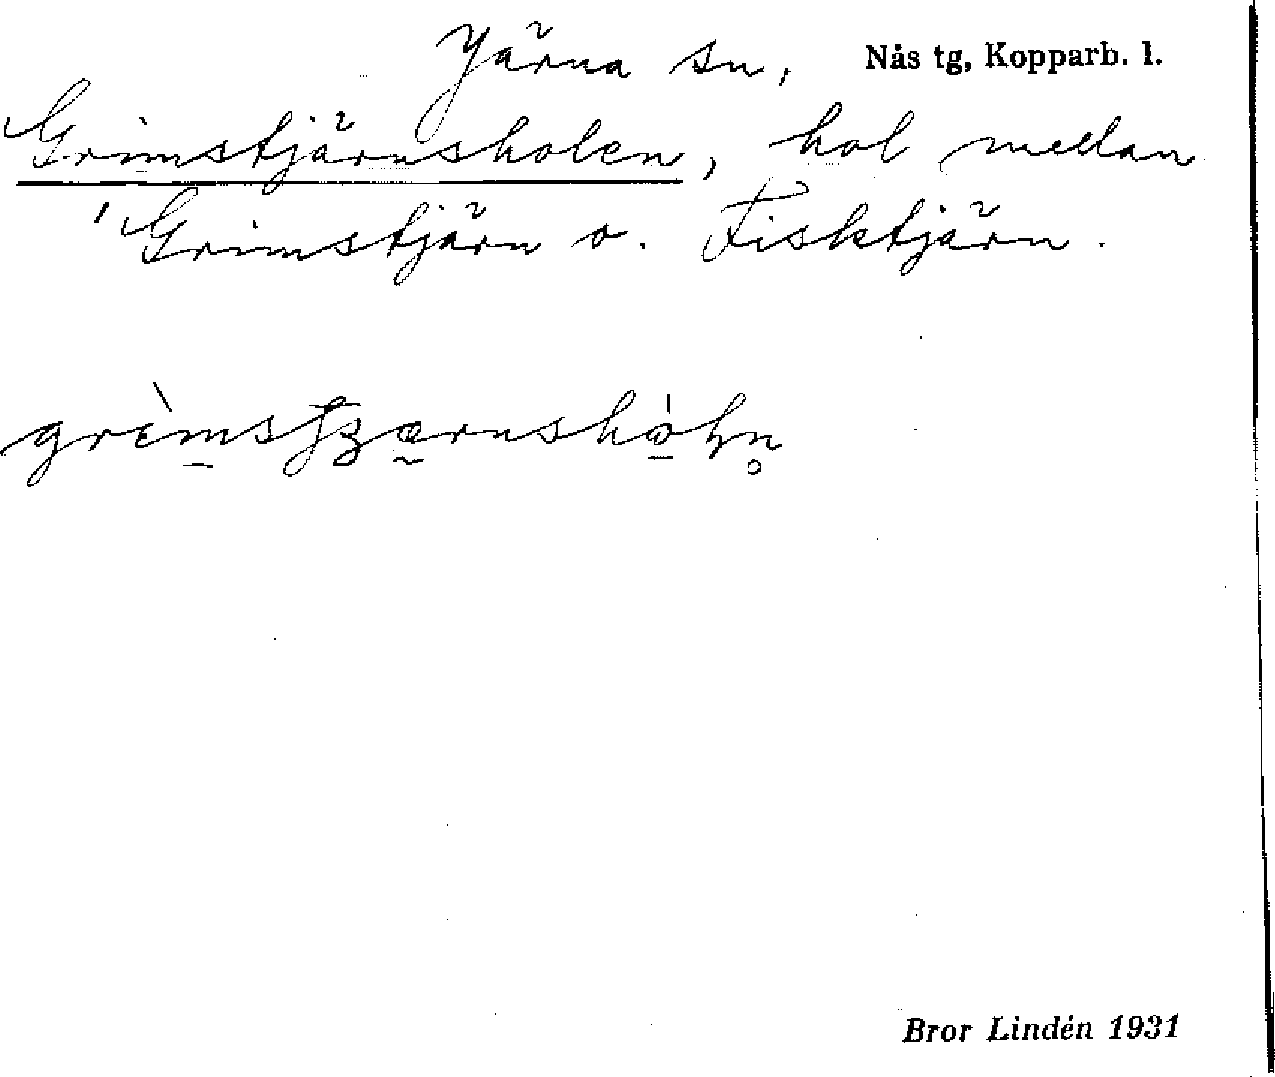 Järna sn, Nås tg, Kopparb. l.
Grimstjärnsholen, hol mellan
Grimstjärn o. Fisktjärn.
Bror Lindén 1931